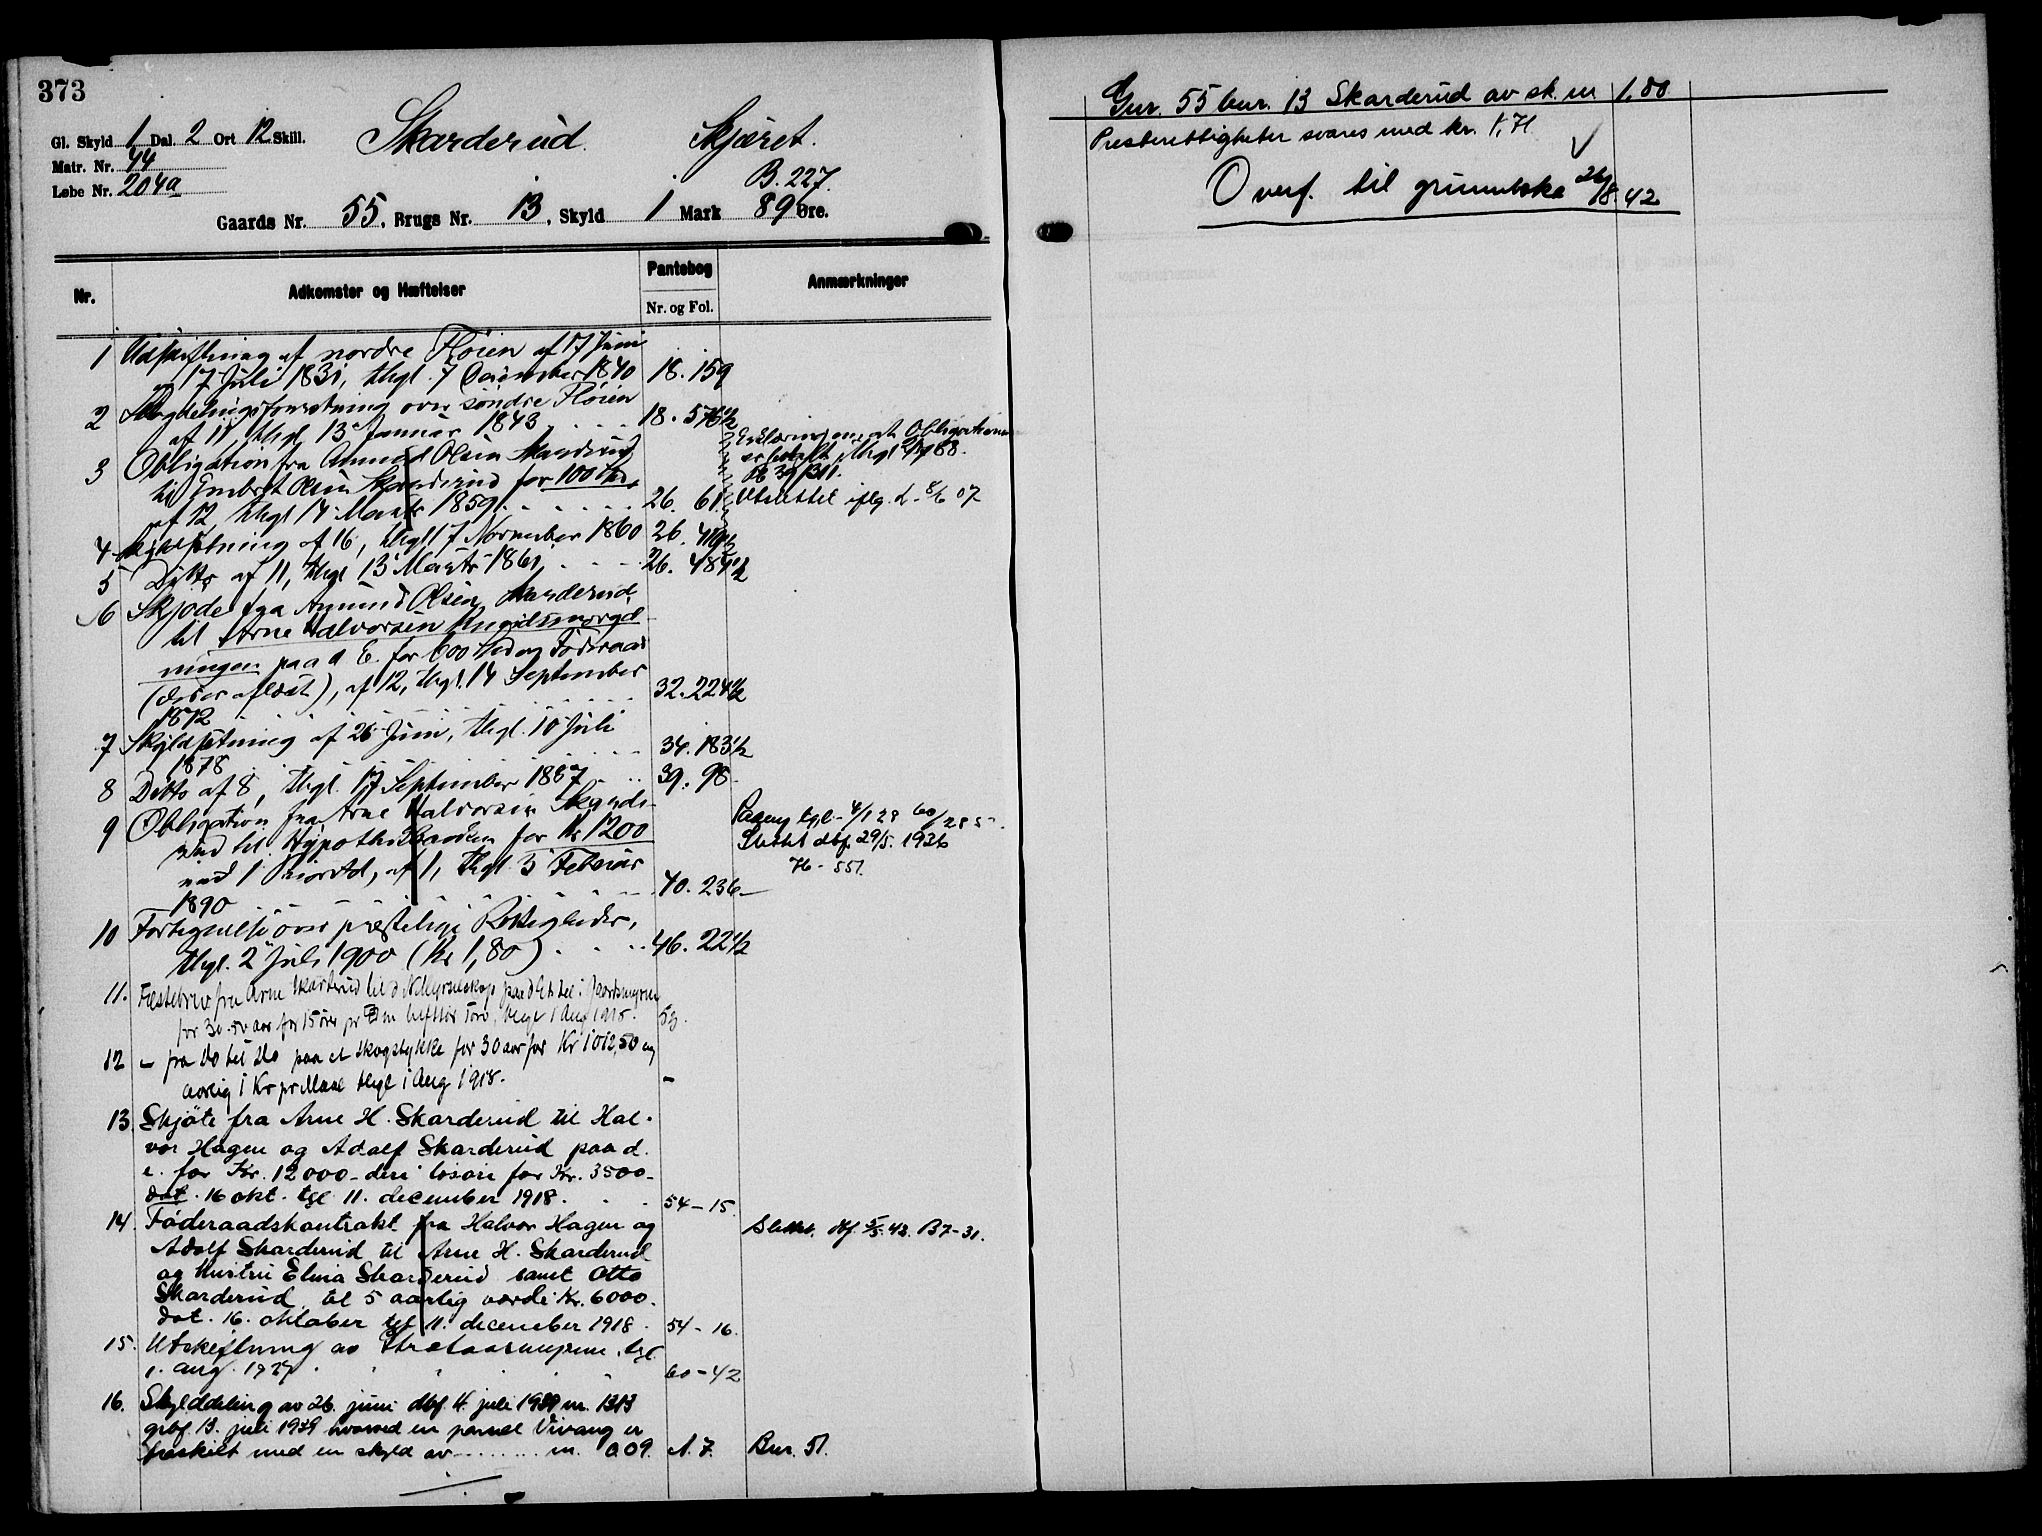 373
Gl. Skyld 1 Dal. 2 Ort 12 Skill.
Matr. Nr. 44
Løbe Nr. 204a
Skarderud. Skjæret.
B. 227.
Gaards Nr. 55, Brugs Nr. 13, Skyld 1 Mark 89 Øre.
Nr. Adkomster og Hæftelser Pantebog Anmærkninger
Nr. og Fol.
1 Udskiftning af nordre Fløien af 17 Juni
og 17 Juli 1831, thgl. 7 December 1840 18. 159
2 over søndre Fløien
af 11, thgl. 13 Januar 1843 18. 576½
3 Obligation fra Amund Olsen Skarderud
til Embret Olsen Skarderud for 100 Spd.
af 12, thgl 14 Marts 1859 26. 61
Erklæring om at Obligationen
er betalt, thgl
39/311.
Udslettet iflg. L. 8/6 07
4 af 16, thgl 17 November 1860 26.
5 Ditto af 11, thgl 13 Marts 1861 26. 484½
6 Skjøde fra Amund Olsen Skarderud
til Arne Halvorsen
ningen paa d. E. for 600 Spd og Föderaad
(der er aflæst), af 12, thgl. 14 September
1872 32. 224½
7 Skyldsetning af 26 Juni, thgl. 10 Juli
1878 34. 183½
8 Ditto af 8, thgl. 17 September 1887 39. 98
9 Obligation fra Arne Halvorsen Skarde-
rud til Hypothekbanken for Kr 1200
med 1 Prioritet, af 1, thgl. 3 Februar
1890 40. 236
tgl. 4/1 28 60/285
Slettet dbf. 29/5. 1936
76 - 551.
10 Fortegnelse over præstelige Rettigheder,
thgl. 2 Juli 1900 (Kr 1,80) 46. 22½
11. Festebrev fra Arne Skarderud til
for 30-50 aar for 15 øre pr thgl 1 Aug 1918. 53.
12 - fra Do til Do paa et Skogstykke for 30 aar for Kr 1012,50 og
aarlig 1 Kr pr Maal thgl 1 Aug 1918. -
13. Skjöte fra Arne H. Skarderud til Hal-
vor Hagen og Adolf Skarderud paa d.
e. for Kr. 12000 - deri lösöre for Kr. 3500 -
dat. 16 okt. tgl 11. december 1918. 54 - 15.
14. Föderaadskontrakt fra Halvor Hagen og
Adolf Skarderud til Arne H. Skarderud
og Hustru Elina Skarderud samt Otto
Skarderud til 5 aarlig værdi Kr. 6000.
dat. 16. oktober tgl 11. december 1918. 54 - 16.
Slettet. dbf. 5/5. 42. B7 - 31.
15. Utskiftning av tgl.
1. aug. 1927. 60 - 42
16. Skylddeling av 26. juni dbf. 4. juli 1939 nr. 1313
grbf. 13. juli 1939 hvorved en parsel Vivang er
fraskilt med en skyld av m. 0.09. A. 7. Bnr. 51.
Gnr. 55 bnr. 13 Skarderud av sk. m 1.80
Presterettigheter svares med kr.
Overf. til grunnboka 26/8.42